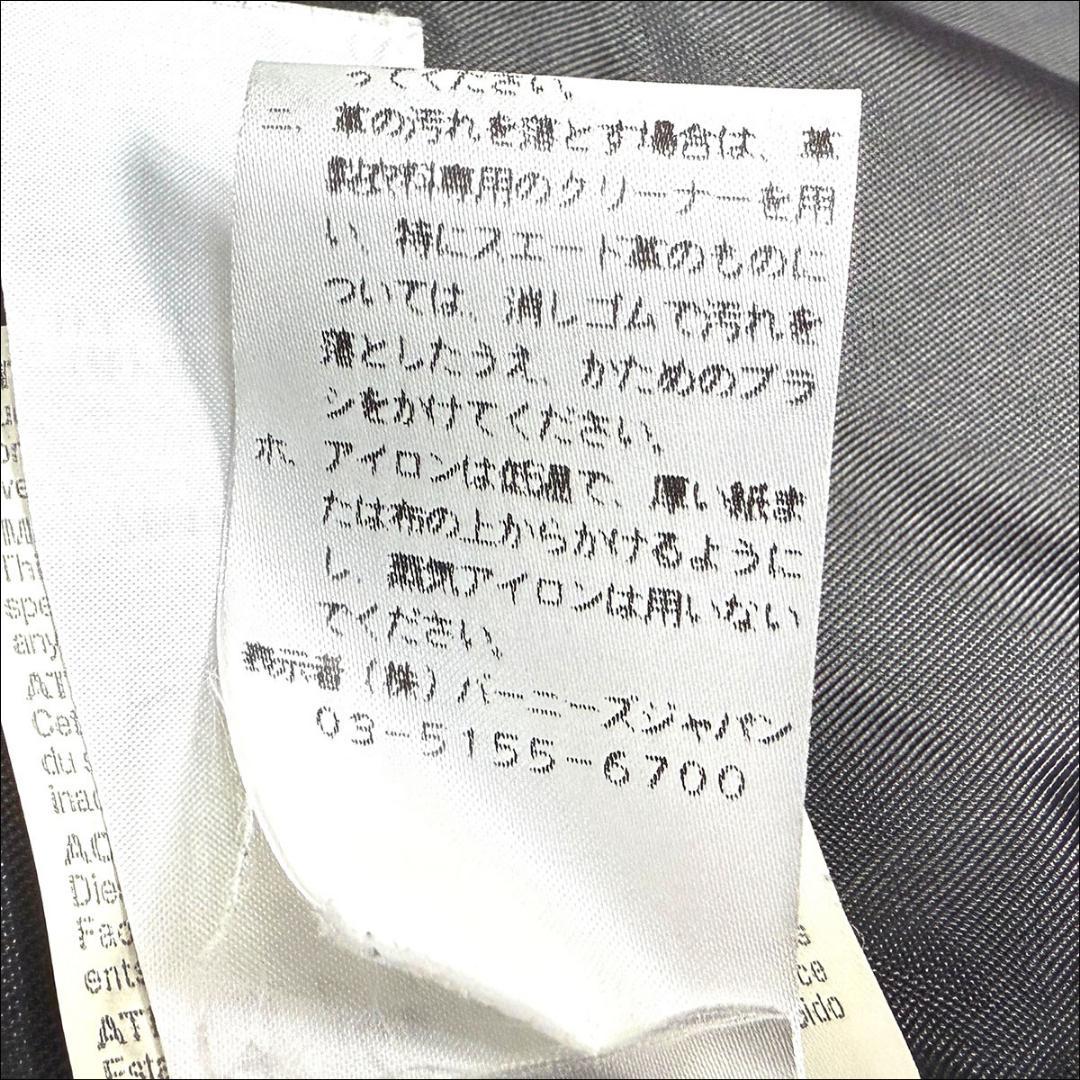 ってください。
ニ、革の汚れを落とす場合は、革
製衣料専用のクリーナーを用
い、特にスエード革のものに
ついては、消しゴムで汚れを
落としたうえ、かためのブラ
シをかけてください。
ホ、アイロンは低温で、厚い紙ま
たは布の上からかけるように
し、蒸気アイロンは用いない
でください。
表示者（株）バーニーズジャパン
03-5155-6700
spe
any
AT
Cet
du s
inac
Die
Fac
ents
AT
Esta
ce